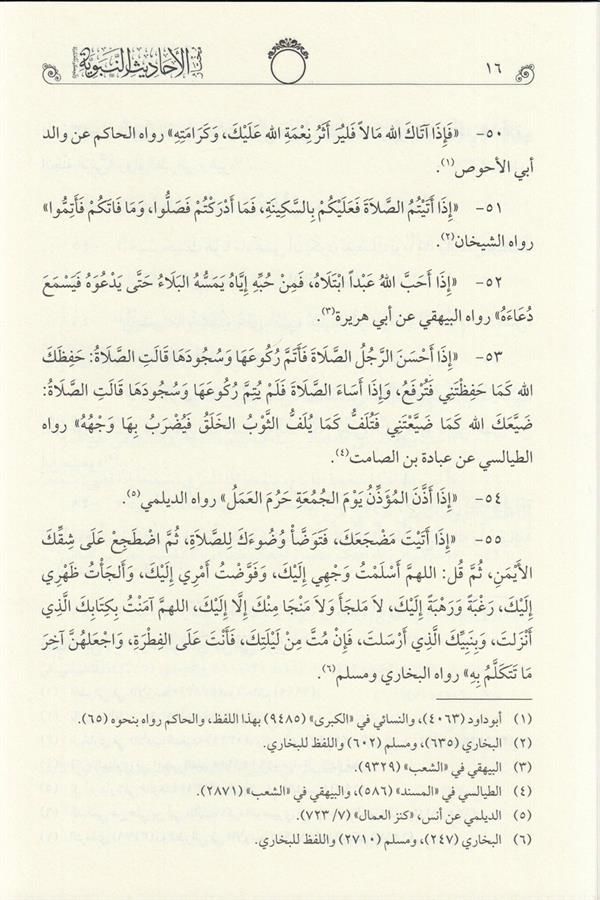 ١٦
مختار الأحاديث النبوية
٥٠- «فَإِذَا آتَاكَ الله مَالاً فَليُرَ أَثَرُ نِعْمَةِ الله عَلَيْكَ، وَكَرَامَتِهِ» رواه الحاكم عن والد
أبي الأحوص(١).
٥١- «إِذَا أَتَيْتُمُ الصَّلاَةَ فَعَلَيْكُمْ بِالسَّكِينَةِ، فَمَا أَدْرَكْتُمْ فَصَلُّوا، وَمَا فَاتَكُمْ فَأَتِمُّوا»
رواه الشيخان(٢).
٥٢- «إِذَا أَحَبَّ اللهُ عَبْداً ابْتَلاَهُ، فَمِنْ حُبِّهِ إِيَّاهُ يَمَسُّهُ البَلاَءُ حَتَّى يَدْعُوَهُ فَيَسْمَعَ
دُعَاءَهُ» رواه البيهقي عن أبي هريرة(٣).
٥٣- «إِذَا أَحْسَنَ الرَّجُلُ الصَّلاَةَ فَأَتَمَّ رُكُوعَهَا وَسُجُودَهَا قَالَتِ الصَّلاَةُ: حَفِظَكَ
الله كَمَا حَفِظْتَنِي فَتُرْفَعُ، وَإِذَا أَسَاءَ الصَّلاَةَ فَلَمْ يُتِمَّ رُكُوعَهَا وَسُجُودَهَا قَالَتِ الصَّلاَةُ:
ضَيَّعَكَ الله كَمَا ضَيَّعْتَنِي فَتُلَفُّ كَمَا يُلَفُّ الثَّوْبُ الخَلَقُ فَيُضْرَبُ بِهَا وَجْهُهُ» رواه
الطيالسي عن عبادة بن الصامت(٤).
٥٤- «إِذَا أَذَّنَ المُؤَذِّنُ يَوْمَ الجُمُعَةِ حَرُمَ العَمَلُ» رواه الديلمي(٥).
٥٥- «إِذَا أَتَيْتَ مَضْجَعَكَ، فَتَوَضَّأْ وُضُوءَكَ لِلصَّلاَةِ، ثُمَّ اضْطَجِعْ عَلَى شِقِّكَ
الأَيْمَنِ، ثُمَّ قُل: اللهمَّ أَسْلَمْتُ وَجْهِي إِلَيْكَ، وَفَوَّضْتُ أَمْرِي إِلَيْكَ، وَأَلجَأْتُ ظَهْرِي
إِلَيْكَ، رَغْبَةً وَرَهْبَةً إِلَيْكَ، لاَ مَلجَأَ وَلاَ مَنْجَا مِنْكَ إِلَّا إِلَيْكَ، اللهمَّ آمَنْتُ بِكِتَابِكَ الَّذِي
أَنْزَلتَ، وَبِنَبِيِّكَ الَّذِي أَرْسَلتَ، فَإِنْ مُتَّ مِنْ لَيْلَتِكَ، فَأَنْتَ عَلَى الفِطْرَةِ، وَاجْعَلهُنَّ آخِرَ
مَا تَتَكَلَّمُ بِهِ» رواه البخاري ومسلم(٦).
(١) أبوداود (٤٠٦٣)، والنسائي في «الكبرى» (٩٤٨٥) بهذا اللفظ، والحاكم رواه بنحوه (٦٥).
(٢) البخاري (٦٣٥)، ومسلم (٦٠٢) واللفظ للبخاري.
(٣) البيهقي في «الشعب» (٩٣٢٩).
(٤) الطيالسي في «المسند» (٥٨٦)، والبيهقي في «الشعب» (٢٨٧١).
(٥) الديلمي عن أنس، «كنز العمال» (٧/ ٧٢٣).
(٦) البخاري (٢٤٧)، ومسلم (٢٧١٠) واللفظ للبخاري.